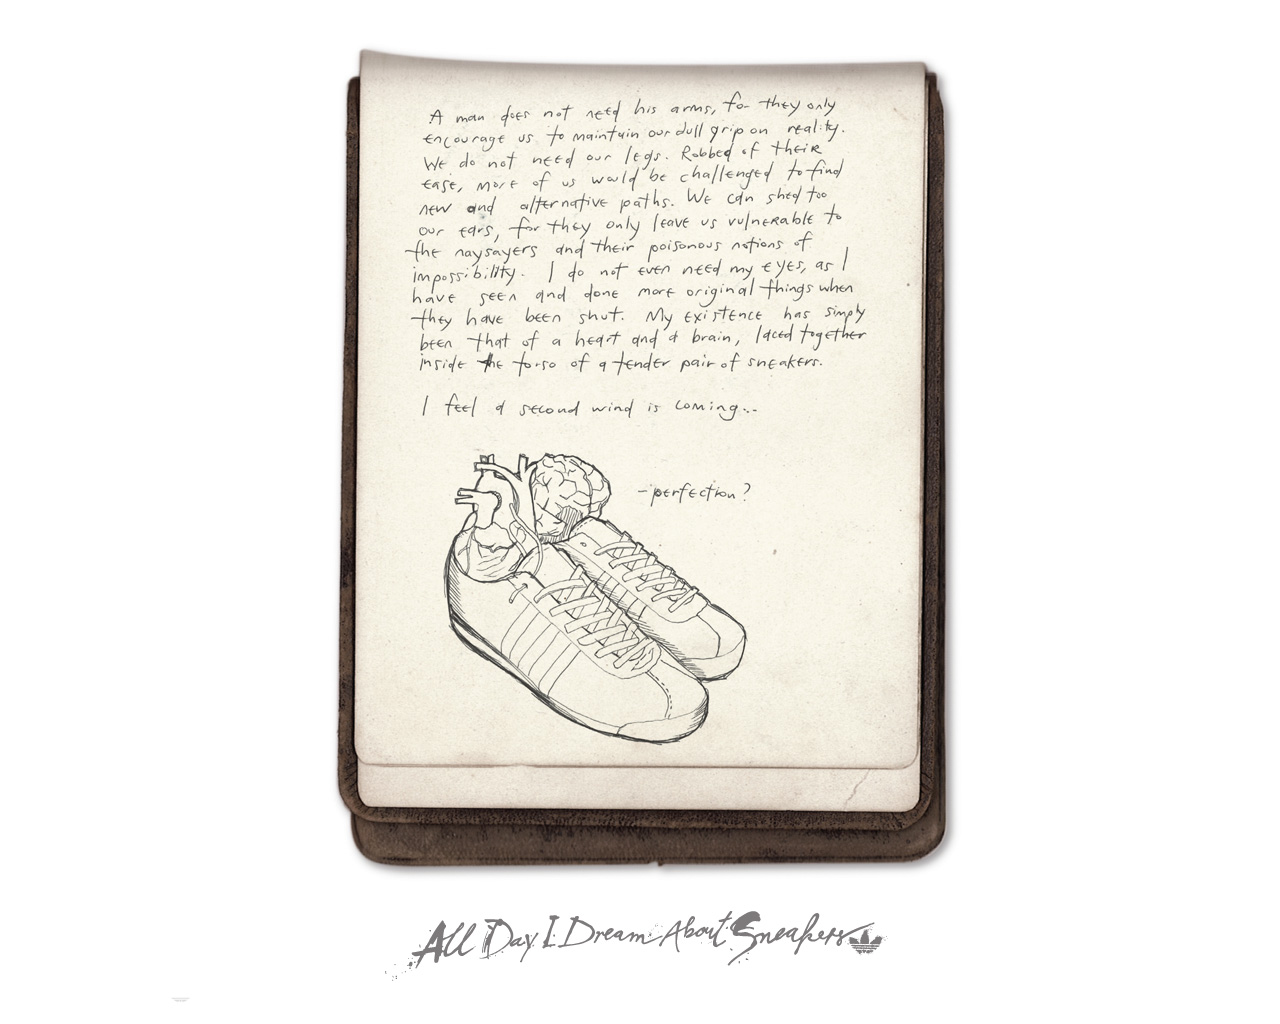 A man does not need his arms, for they only
encourage us to maintain our dull grip on reality.
We do not need our legs. Robbed of their
ease, more of us would be challenged to find
new and alternative paths. We can shed too
our ears, for they only leave us vulnerable to
the naysayers and their poisonous notions of
impossibility. I do not even need my eyes, as I
have seen and done more original things when
they have been shut. My existence has simply
been that of a heart and a brain, laced together
inside the torso of a tender pair of sneakers.
I feel a second wind is coming...
-perfection?
All Day I Dream About Sneakers